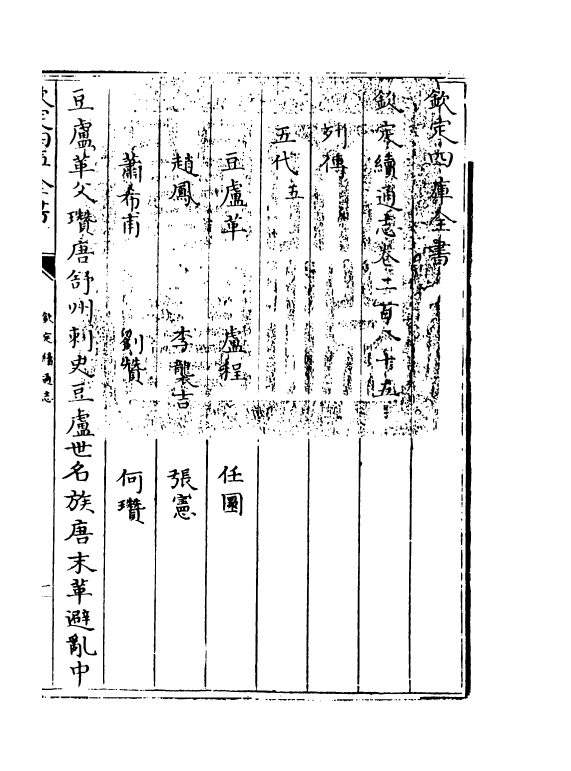 欽定四庫全書
欽定續通志卷二百八十五
列傳
五代五
豆盧革　盧程　任圜
趙鳳　李襲吉　張憲
蕭希甫　劉贊　何瓚
豆盧革父瓚唐舒州刺史豆盧世名族唐末革避亂中
欽定四庫全書
欽定續通志
一